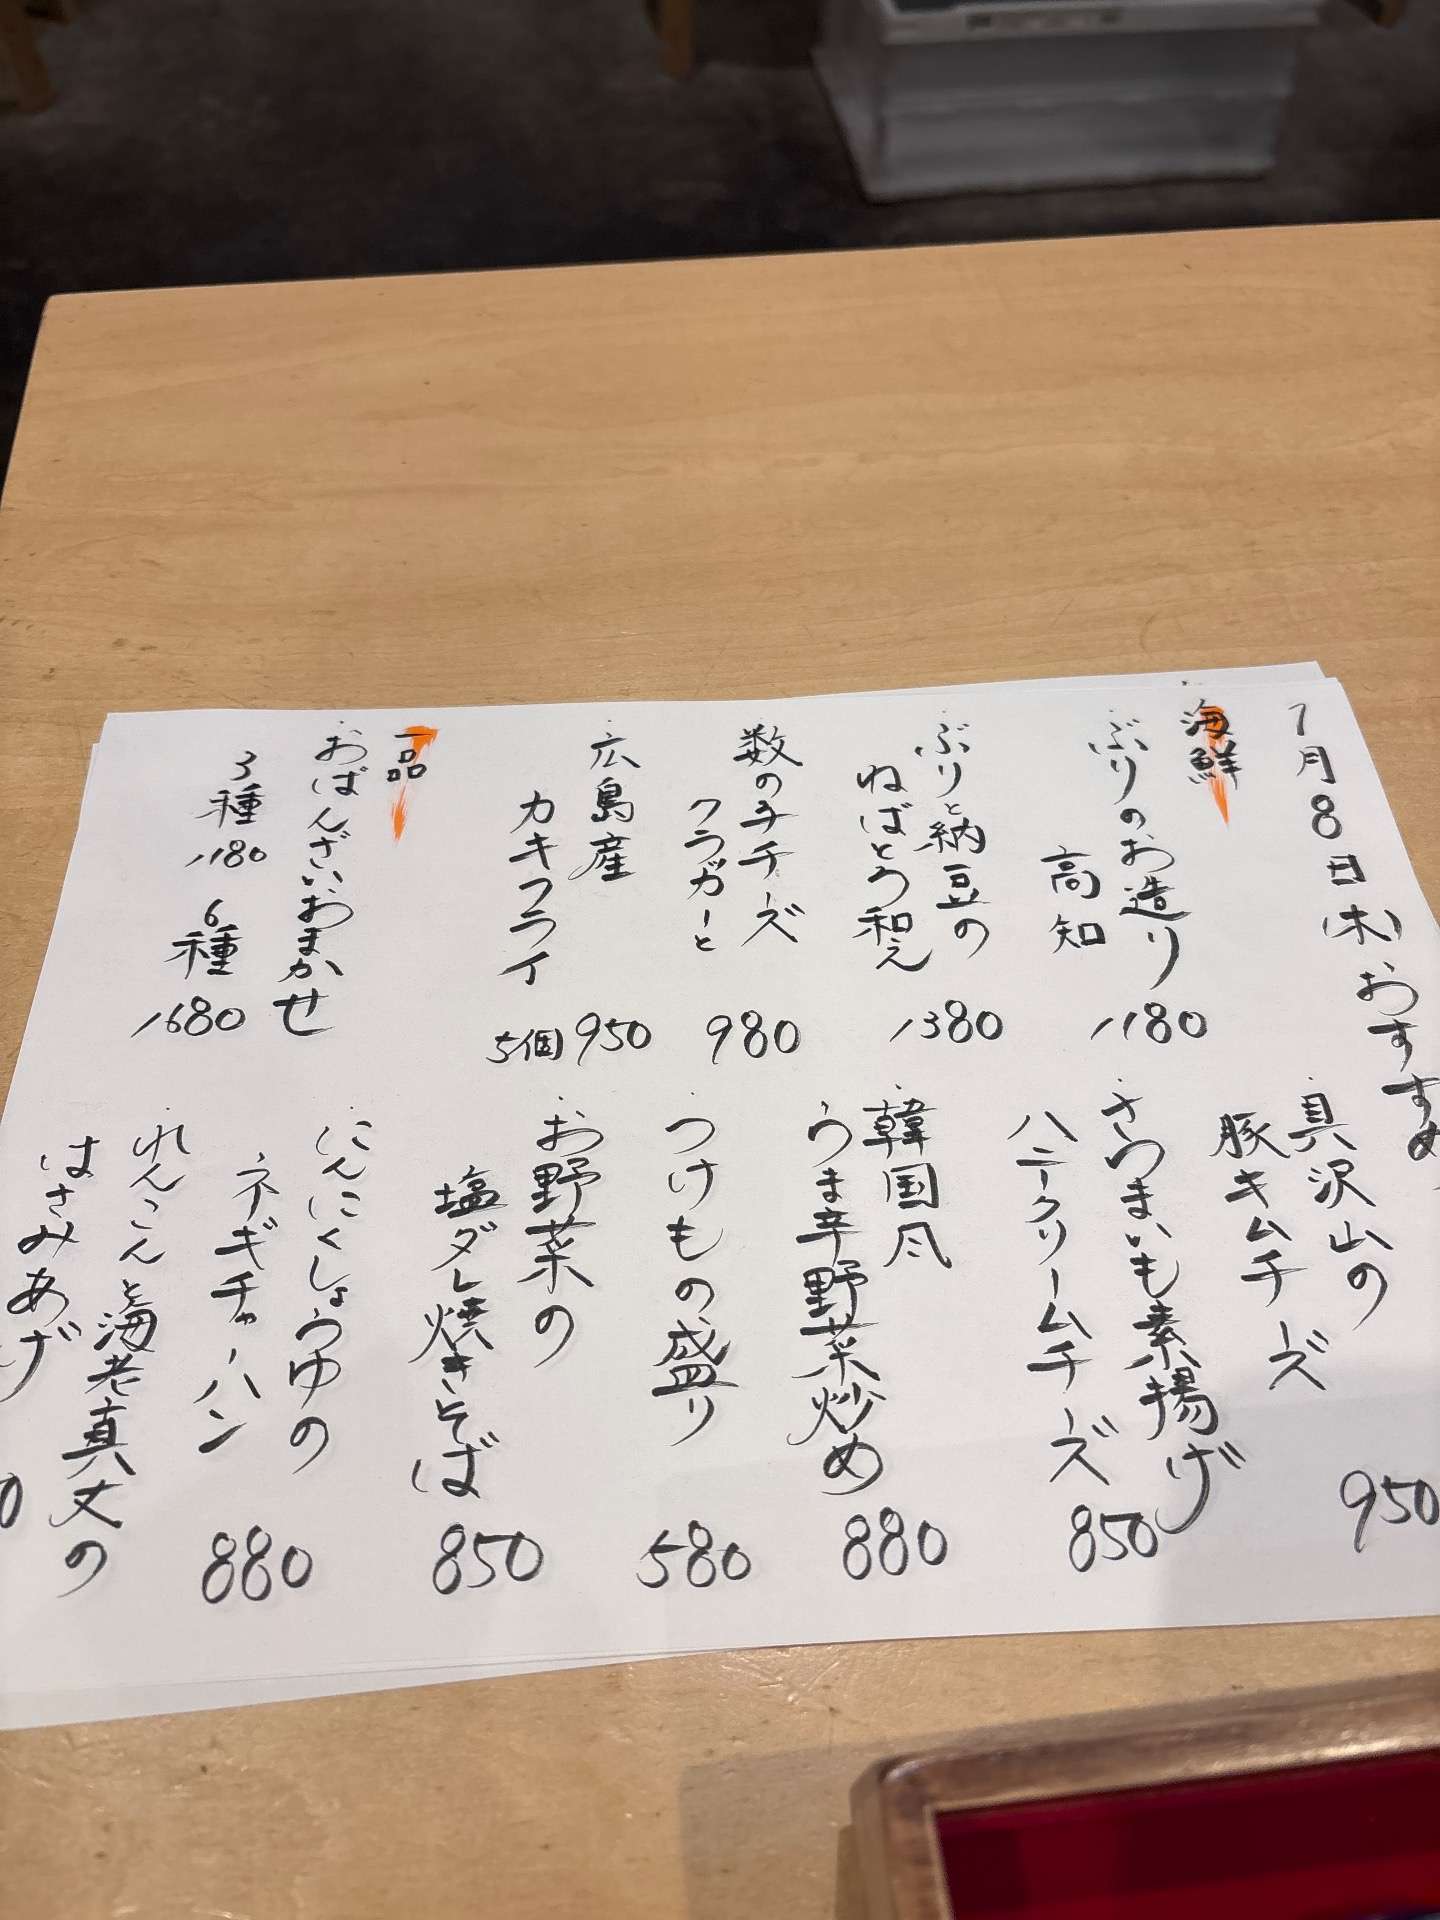 1月8日(木)おすすめ
海鮮
・ぶりのお造り
高知
1180
・ぶりと納豆の
ねばとろ和え
1380
・数の子チーズ
クラッカーと
980
・広島産
カキフライ
5個950
一品
・おばんざいおまかせ
3種
1180
6種
1680
具沢山の
豚キムチーズ
950
・さつまいも素揚げ
ハニークリームチーズ
850
・韓国風
うま辛野菜炒め
880
・つけもの盛り
580
・お野菜の
塩ダレ焼きそば
850
・にんにくしょうゆの
ネギチャーハン
880
・れんこんと海老真丈の
はさみあげ
0